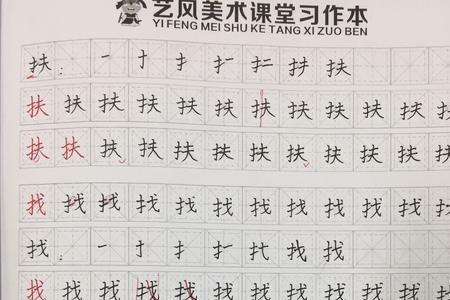 艺风美术课堂习作本
YI FENG MEI SHU KE TANG XI ZUO BEN
扶 一 扌 扶
扶 扶 扶 扶 扶 扶 扶 扶 扶 扶 扶 扶
扶 扶 扶 扶 扶 扶 扶 扶 扶 扶 扶 扶
找 找 找 找 找 找 找 找 找 找 找 找
找 一 扌 找
找 找 找 找 找 找 找 找 找 找 找 找